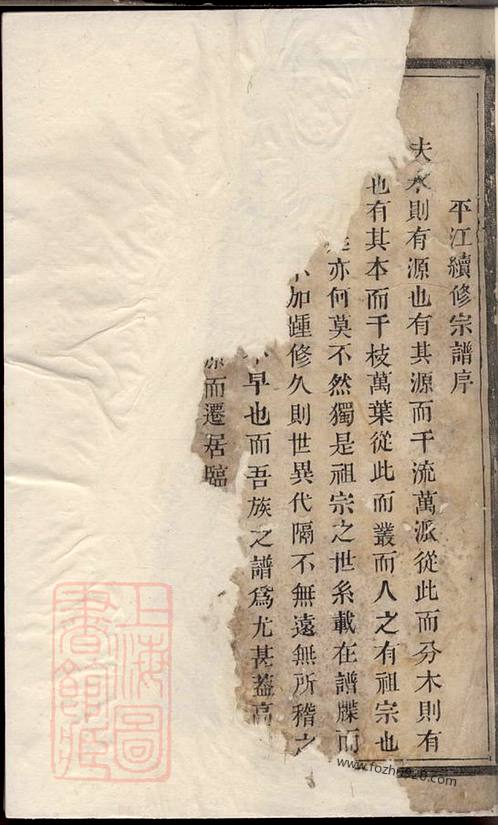 平江續修宗譜序
夫水則有源也有其源而千流萬派從此而分木則有
也有其本而千枝萬葉從此而叢而人之有祖宗也
亦何莫不然獨是祖宗之世系載在譜牒而
加踵修久則世異代隔不無遠無所稽之
早也而吾族之譜爲尤甚蓋高
源而遷居臨
上海圖
書館藏
www.fozhu920.com